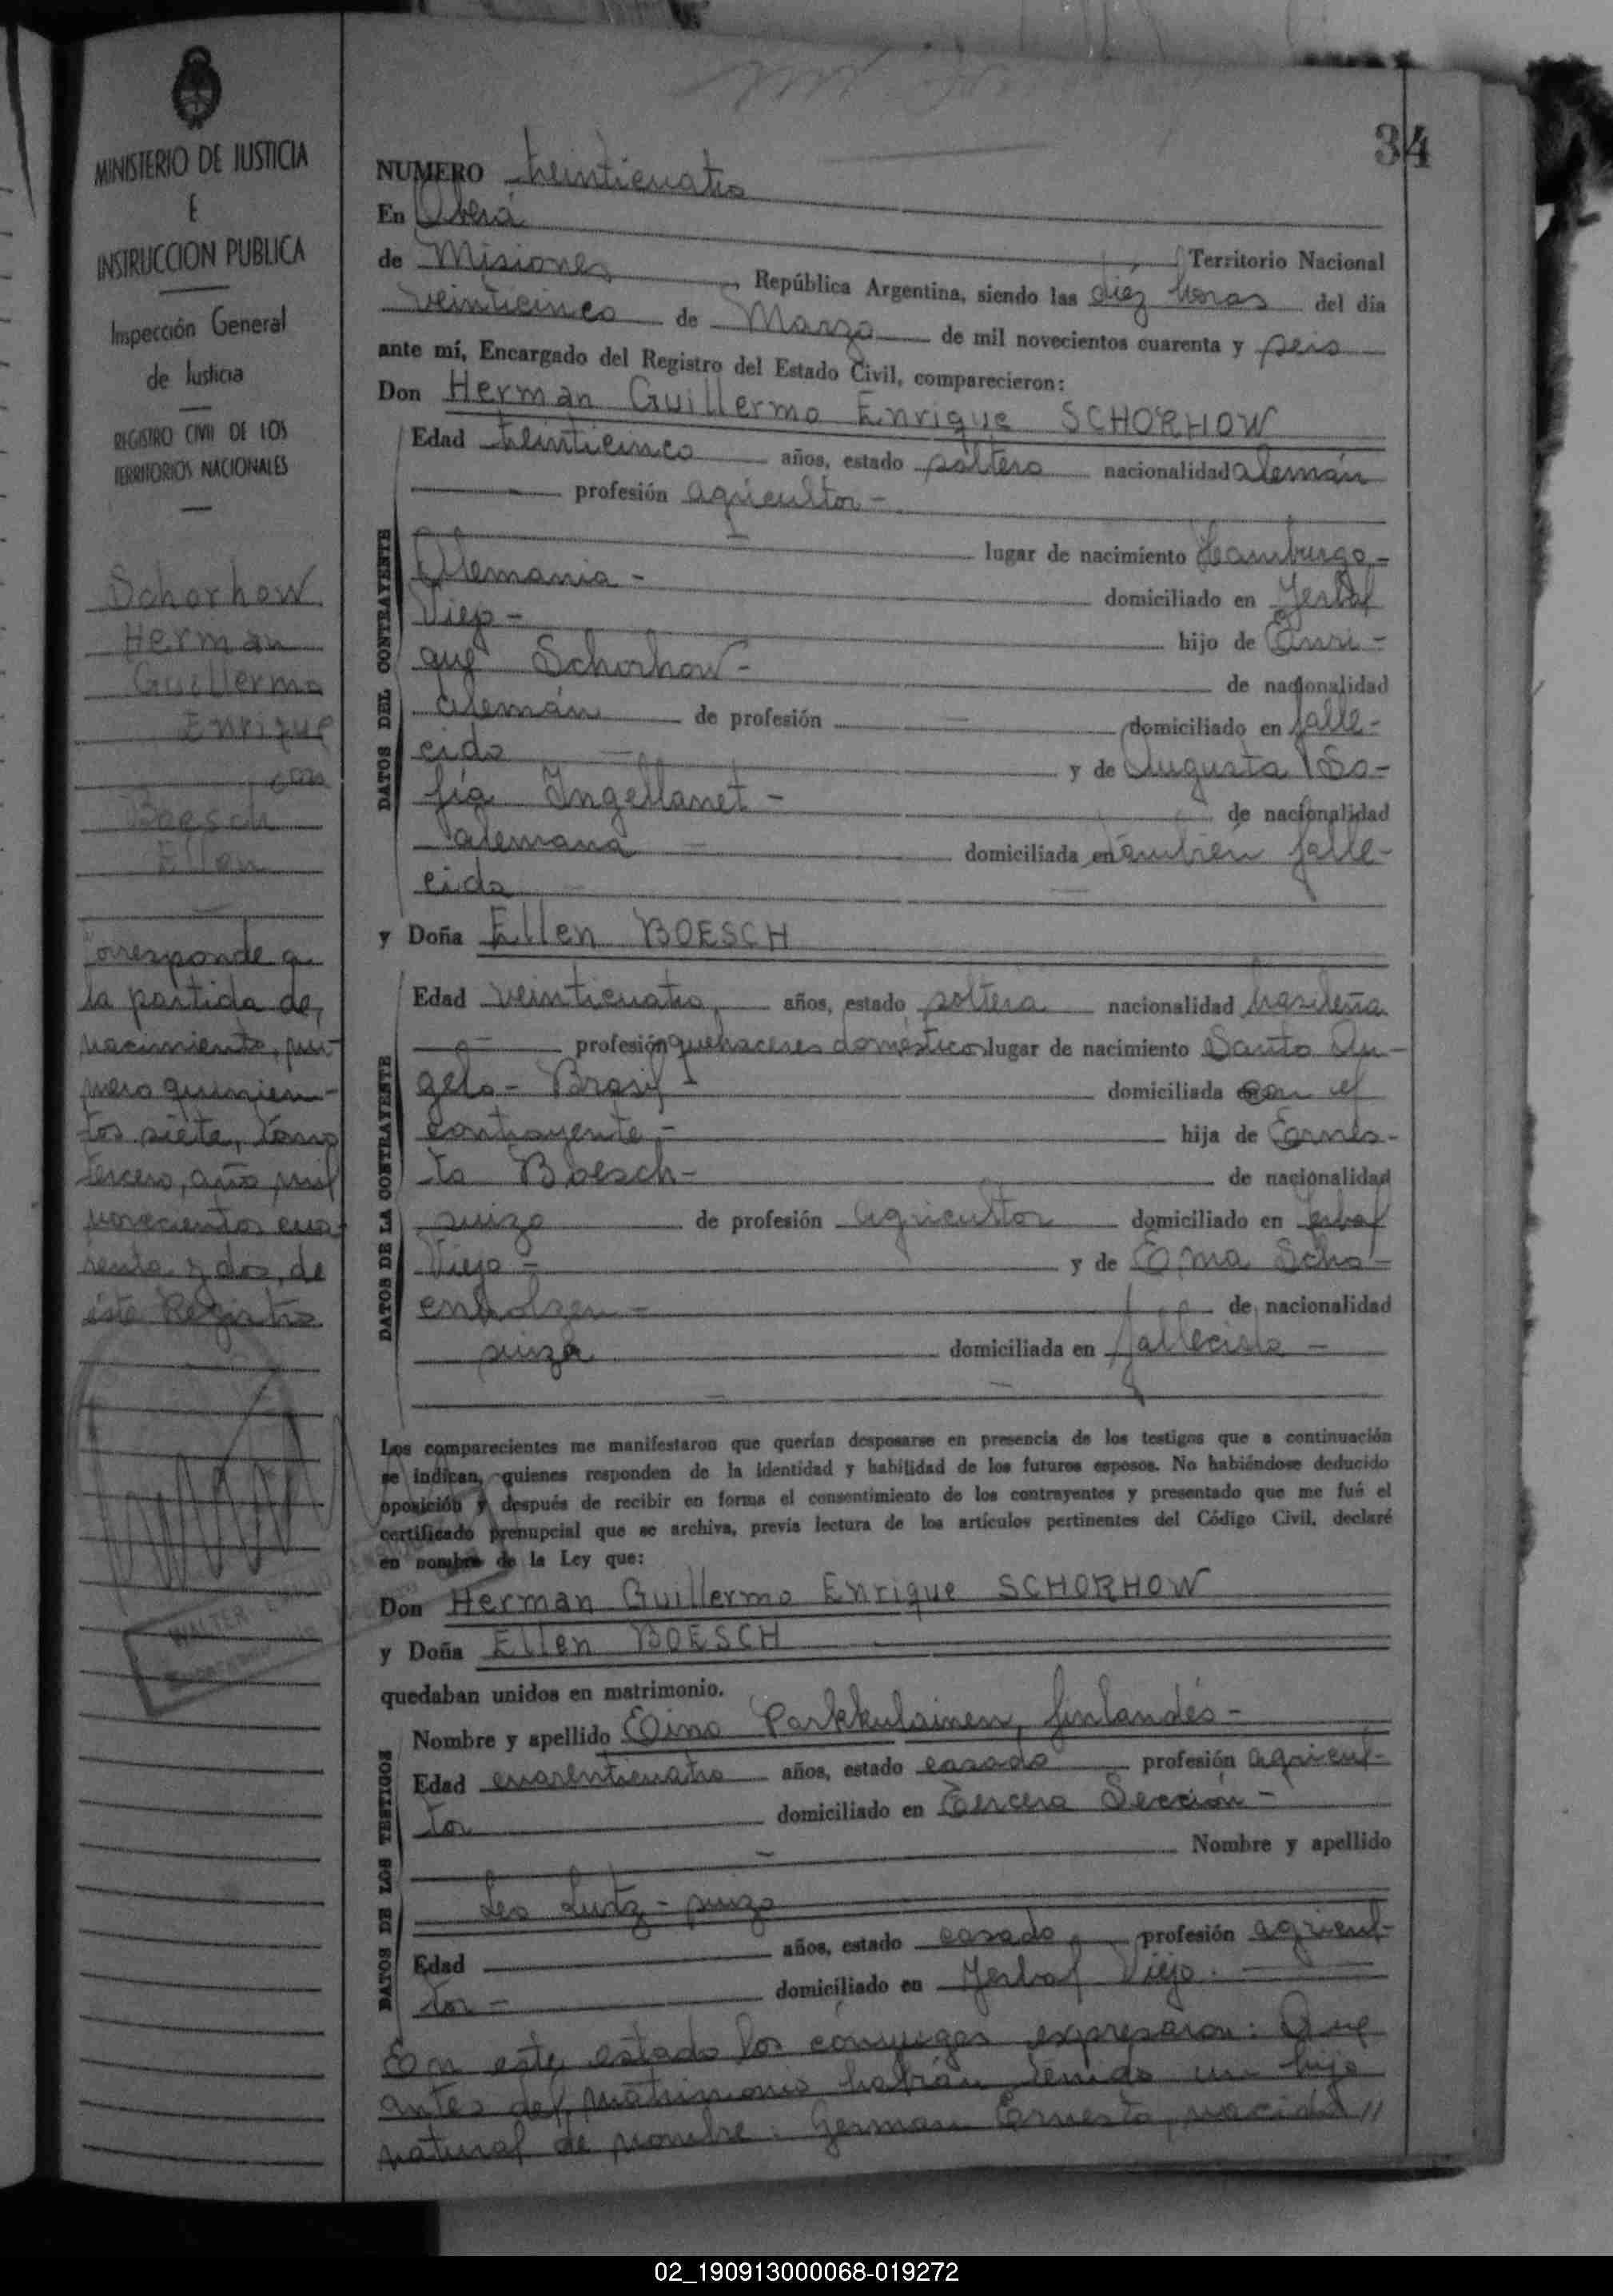 34
MINISTERIO DE JUSTICIA
E
INSTRUCCION PUBLICA
Inspección General
de Justicia
REGISTRO CIVIL DE LOS
TERRITORIOS NACIONALES
Schorhow
Herman
Guillermo
Enrique
con
Boesch
Ellen
Corresponde a
la partida de
nacimiento, nú-
mero quinien-
tos siete, tomo
tercero, año mil
novecientos cua-
renta y dos, de
éste Registro
WALTER
NUMERO treinticuatro
En Oberá
Territorio Nacional
de Misiones, República Argentina, siendo las diez horas del día
veinticinco de Marzo de mil novecientos cuarenta y seis
ante mí, Encargado del Registro del Estado Civil, comparecieron:
Don Herman Guillermo Enrique SCHORHOW
DATOS DEL CONTRAYENTE
Edad treinticinco años, estado soltero nacionalidad alemán
profesión agricultor -
lugar de nacimiento Hamburgo -
Alemania - domiciliado en Yerbal
Viejo - hijo de Enri -
que Schorhow - de nacionalidad
alemán de profesión — domiciliado en falle -
cido — y de Augusta So -
fía Ingellanet - de nacionalidad
alemana — domiciliada en también falle -
cida —
y Doña Ellen BOESCH
DATOS DE LA CONTRAYENTE
Edad veinticuatro años, estado soltera nacionalidad brasileña
profesión quehaceres domésticos lugar de nacimiento Santo An -
gelo - Brasil domiciliada con el
contrayente - hija de Ernes -
to Boesch - de nacionalidad
suizo de profesión agricultor domiciliado en Yerbal
Viejo - y de Ema Scho -
enholzen - de nacionalidad
suiza domiciliada en fallecida -
Los comparecientes me manifestaron que querían desposarse en presencia de los testigos que a continuación
se indican, quienes responden de la identidad y habilidad de los futuros esposos. No habiéndose deducido
oposición y después de recibir en forma el consentimiento de los contrayentes y presentado que me fué el
certificado prenupcial que se archiva, previa lectura de los artículos pertinentes del Código Civil, declaré
en nombre de la Ley que:
Don Herman Guillermo Enrique SCHORHOW
y Doña Ellen BOESCH
quedaban unidos en matrimonio.
DATOS DE LOS TESTIGOS
Nombre y apellido Eino Parkkulainen, finlandés -
Edad cuarenticuatro años, estado casado profesión agricul -
tor domiciliado en Tercera Sección -
Nombre y apellido
Leo Lutz - suizo
Edad años, estado casado, profesión agricul -
tor - domiciliado en Yerbal Viejo.
En este estado los cónyuges expresaron: Que
antes del matrimonio habían tenido un hijo
natural de nombre: German Ernesto, nacido //
02_190913000068-019272